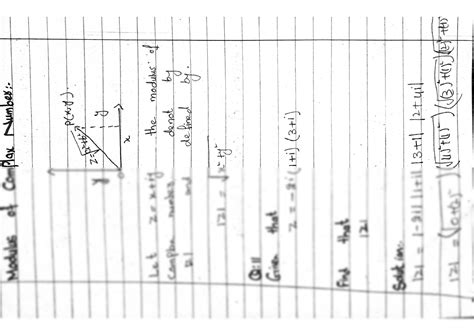 Modulus of Complax Number:-
P(x,y)
y
x
Let z = x+iy the modulus of
complax number denot by
|z| and defined by.
|z| = √x²+y²
Q:1
Given that
z = -2i (1+i) (3+i)
Find that
|z|
Solution:
|z| = |-2i| |1+i| |3+i| |2+4i|